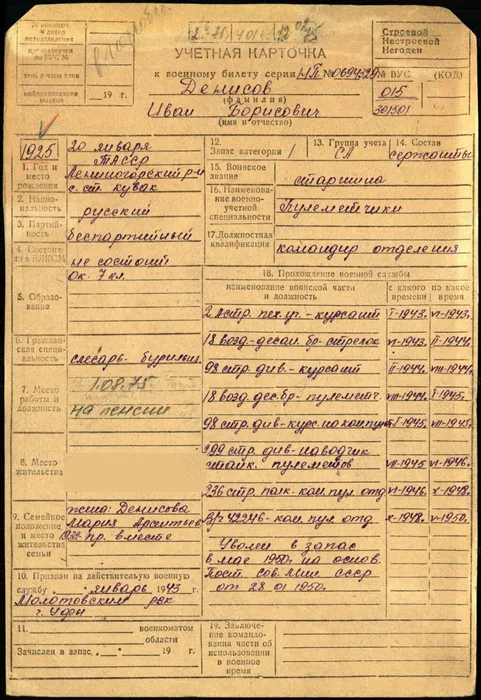 Строевой
Нестроевой
Негоден
УЧЕТНАЯ КАРТОЧКА
к военному билету серии НП № 0694329
ВУС (КОД)
Денисов
(фамилия)
015
Иван Борисович
(имя и отчество)
301501
19 г.
1925
1. Год и место рождения
20 января
ТАССР
Лениногорский р-н
с. ст. Кувак
2. Национальность
русский
3. Партийность
беспартийный
4. Состоит ли в ВЛКСМ
не состоит
5. Образование
Ок. 7 кл.
6. Гражданская специальность
слесарь-бурильщ.
7. Место работы и должность
1.08.75
на пенсии
8. Место жительства
9. Семейное положение и место жительства семьи
жена: Денисова
Мария
пр. вместе
10. Призван на действительную военную
службу январь 1943 г.
Молотовским рвк
г. Уфы
11. военкоматом
области
Зачислен в запас 19 г.
12. Запас категории 1
13. Группа учета СА
14. Состав сержанты
15. Воинское звание
старшина
16. Наименование военно-учетной специальности
Пулеметчики
17. Должностная квалификация
командир отделения
18. Прохождение военной службы
наименование воинской части и должность
с какого времени
по какое время
2 стр. пех. уч. - курсант I-1943. VI-1943.
18 возд-десан. бр-стрелок VI-1943. II-1944.
98 стр. див. - курсант II-1944. VIII-1944.
18 возд. дес. бр - пулеметч. VIII-1944. I-1945.
98 стр. див - курс. на ком. пул I-1945. VII-1945.
399 стр. див - наводчик
станк. пулеметов VII-1945 VI-1946.
236 стр. полк - ком. пул. отд VI-1946 X-1948.
В/ч 42246 - ком. пул. отд. X-1948. V-1950.
Уволен в запас
в мае 1950г. на основ.
Пост. Сов. Мин СССР
от 28 01 1950г.
19. Заключение командования части об использовании в военное время